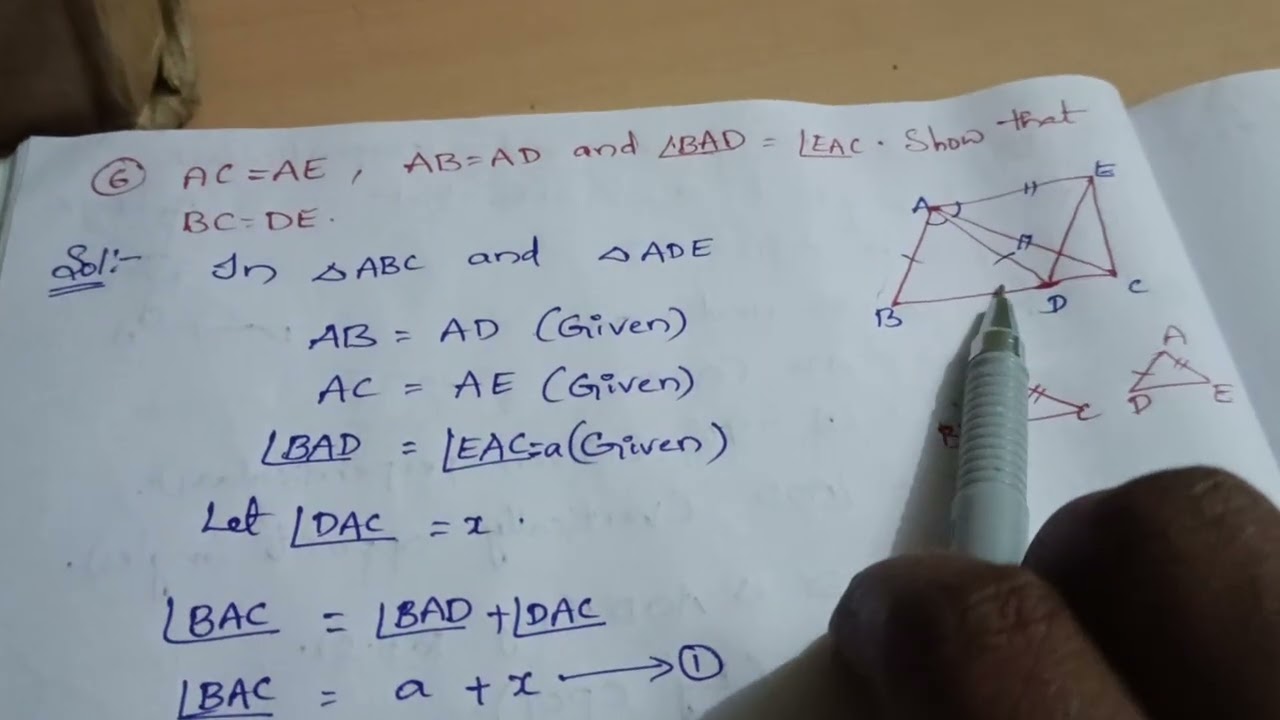 ⑥ AC=AE, AB=AD and ∠BAD = ∠EAC. Show that
BC=DE.
Sol:- In △ABC and △ADE
AB = AD (Given)
AC = AE (Given)
∠BAD = ∠EAC=a (Given)
Let ∠DAC = x.
∠BAC = ∠BAD + ∠DAC
∠BAC = a + x ⟶ ①
A E
B D C
A
D E
B C